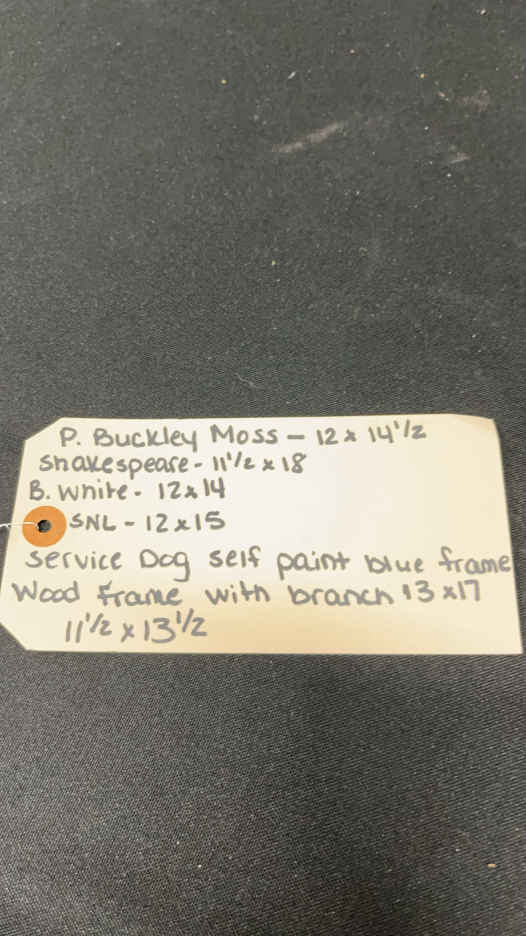 P. Buckley Moss - 12 x 14 1/2
Shakespeare - 11 1/2 x 18
B. White - 12x14
SNL - 12x15
Service Dog self paint blue frame
Wood frame with branch 13 x17
11 1/2 x 13 1/2